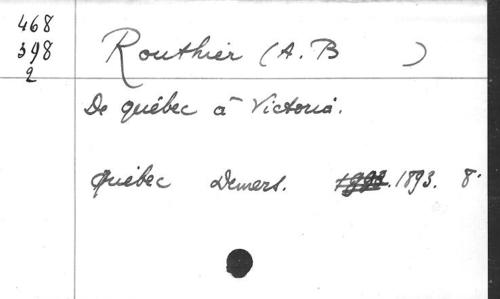 468
398
2
Routhier (A. B )
De Québec à Victoria.
Québec Demers. 1893. 8°